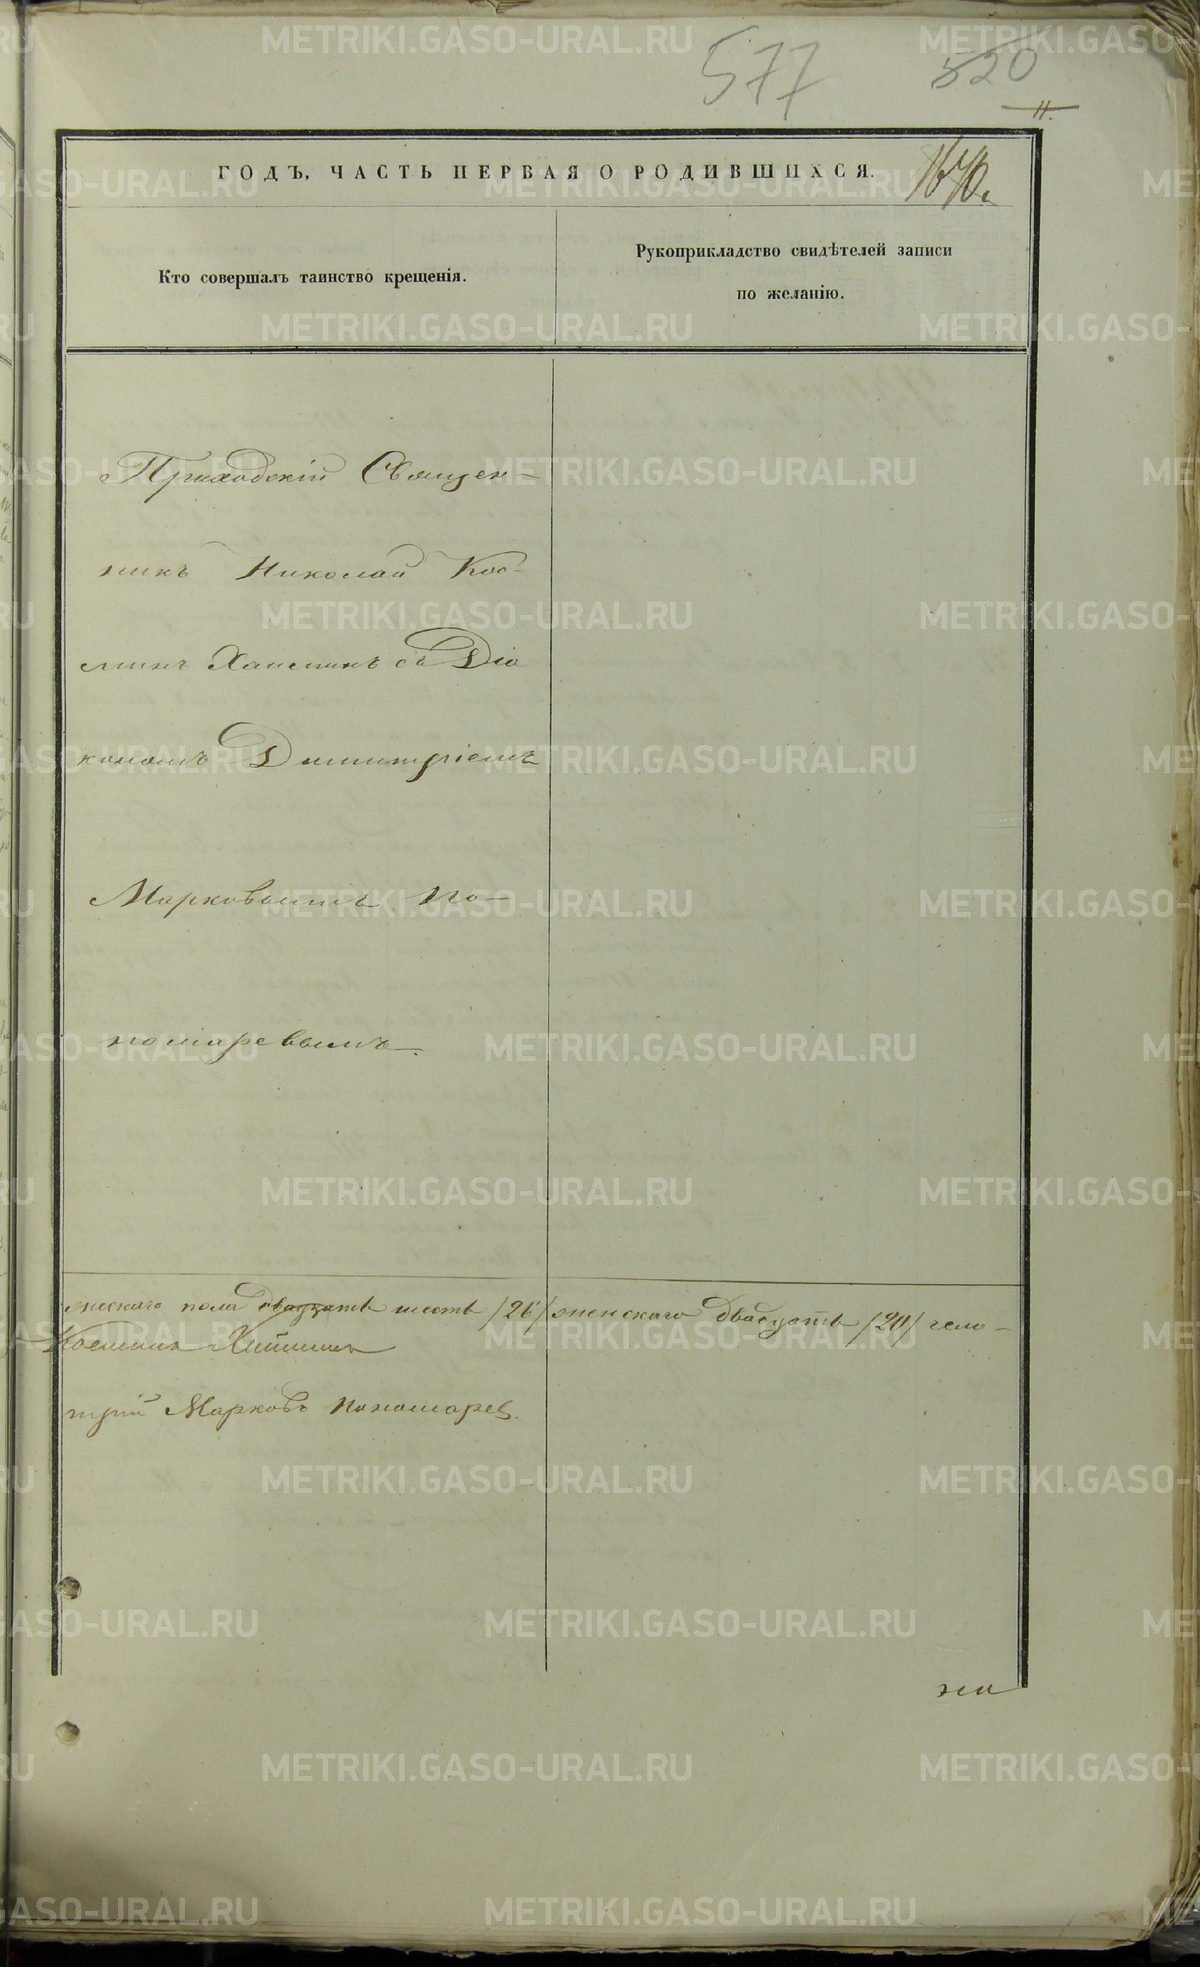 577
520
11.
ГОДЪ, ЧАСТЬ ПЕРВАЯ О РОДИВШИХСЯ.
Кто совершалъ таинство крещенія.
Рукоприкладство свидѣтелей записи
по желанію.
Приходскій Священ-
никъ Николай Кос-
минъ съ Діа
кономъ Димитріемъ
Марковымъ По-
номаревымъ.
жескаго пола двадцать шесть /26/ женскаго двадцать /20/ чело-
Косминъ
трій Марковъ Пономарев.
METRIKI.GASO-URAL.RU